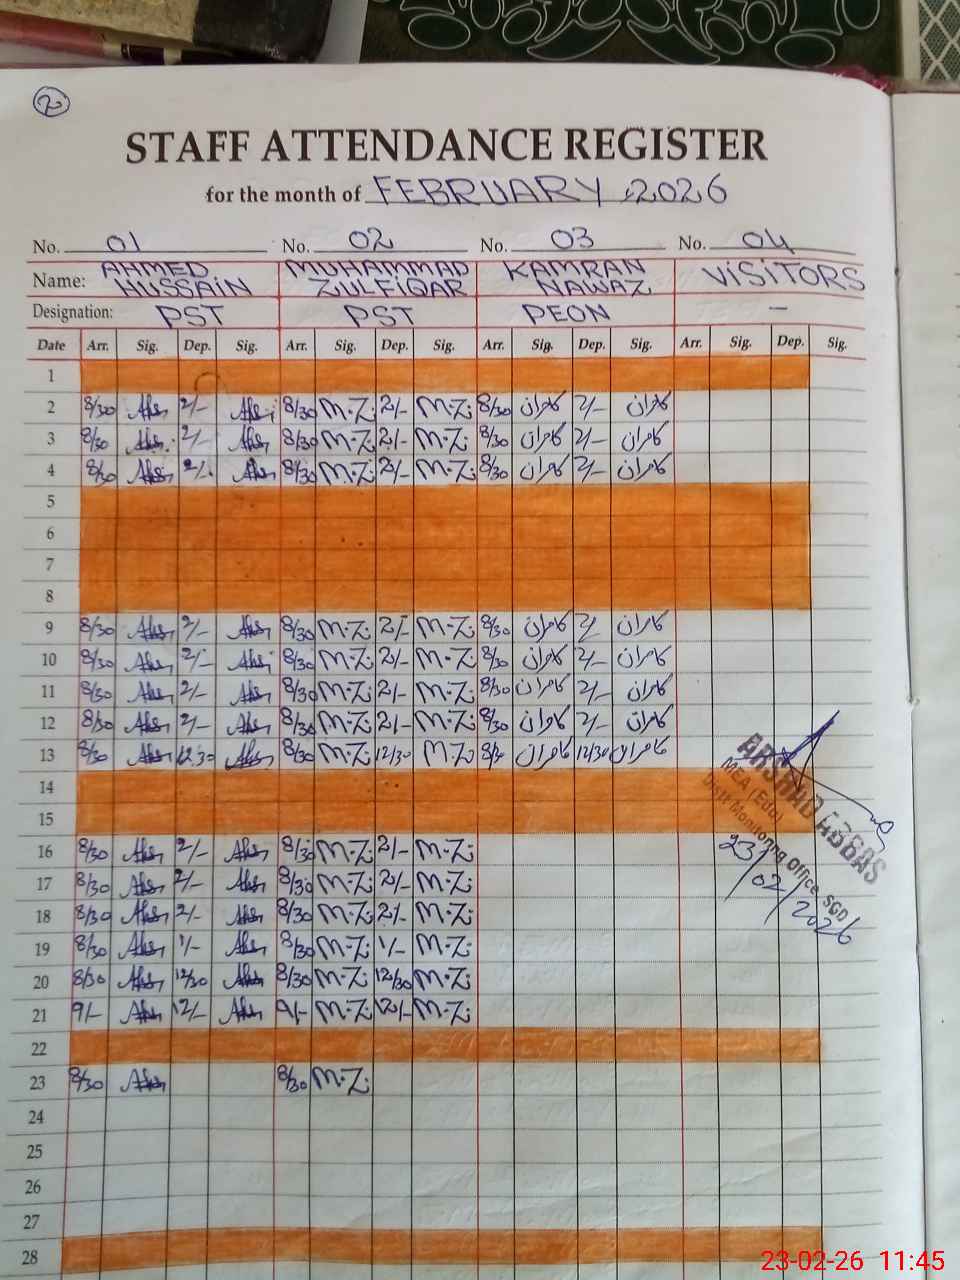 2
STAFF ATTENDANCE REGISTER
for the month of FEBRUARY, 2026
No. 01 No. 02 No. 03 No. 04
Name: AHMED HUSSAIN MUHAMMAD ZULFIQAR KAMRAN NAWAZ VISITORS
Designation: PST PST PEON —
Date Arr. Sig. Dep. Sig. Arr. Sig. Dep. Sig. Arr. Sig. Dep. Sig. Arr. Sig. Dep. Sig.
1
2 8/30 2/- 8/30 M.Z 2/- M.Z 8/30 کامران 2/- کامران
3 8/30 2/- 8/30 M.Z 2/- M.Z 8/30 کامران 2/- کامران
4 8/30 2/- 8/30 M.Z 2/- M.Z 8/30 کامران 2/- کامران
5
6
7
8
9 8/30 2/- 8/30 M.Z 2/- M.Z 8/30 کامران 2/- کامران
10 8/30 2/- 8/30 M.Z 2/- M.Z 8/30 کامران 2/- کامران
11 8/30 2/- 8/30 M.Z 2/- M.Z 8/30 کامران 2/- کامران
12 8/30 2/- 8/30 M.Z 2/- M.Z 8/30 کامران 2/- کامران
13 8/30 12/30 8/30 M.Z 12/30 M.Z 8/30 کامران 12/30 کامران
14
15
16 8/30 2/- 8/30 M.Z 2/- M.Z
17 8/30 2/- 8/30 M.Z 2/- M.Z
18 8/30 2/- 8/30 M.Z 2/- M.Z
19 8/30 1/- 8/30 M.Z 1/- M.Z
20 8/30 12/30 8/30 M.Z 12/30 M.Z
21 9/- 12/- 9/- M.Z 12/- M.Z
22
23 8/30 8/30 M.Z
24
25
26
27
28
ARSHAD ABBAS
MEA (Edu)
Distt Monitoring Office, SGD
23/02/2026
23-02-26 11:45